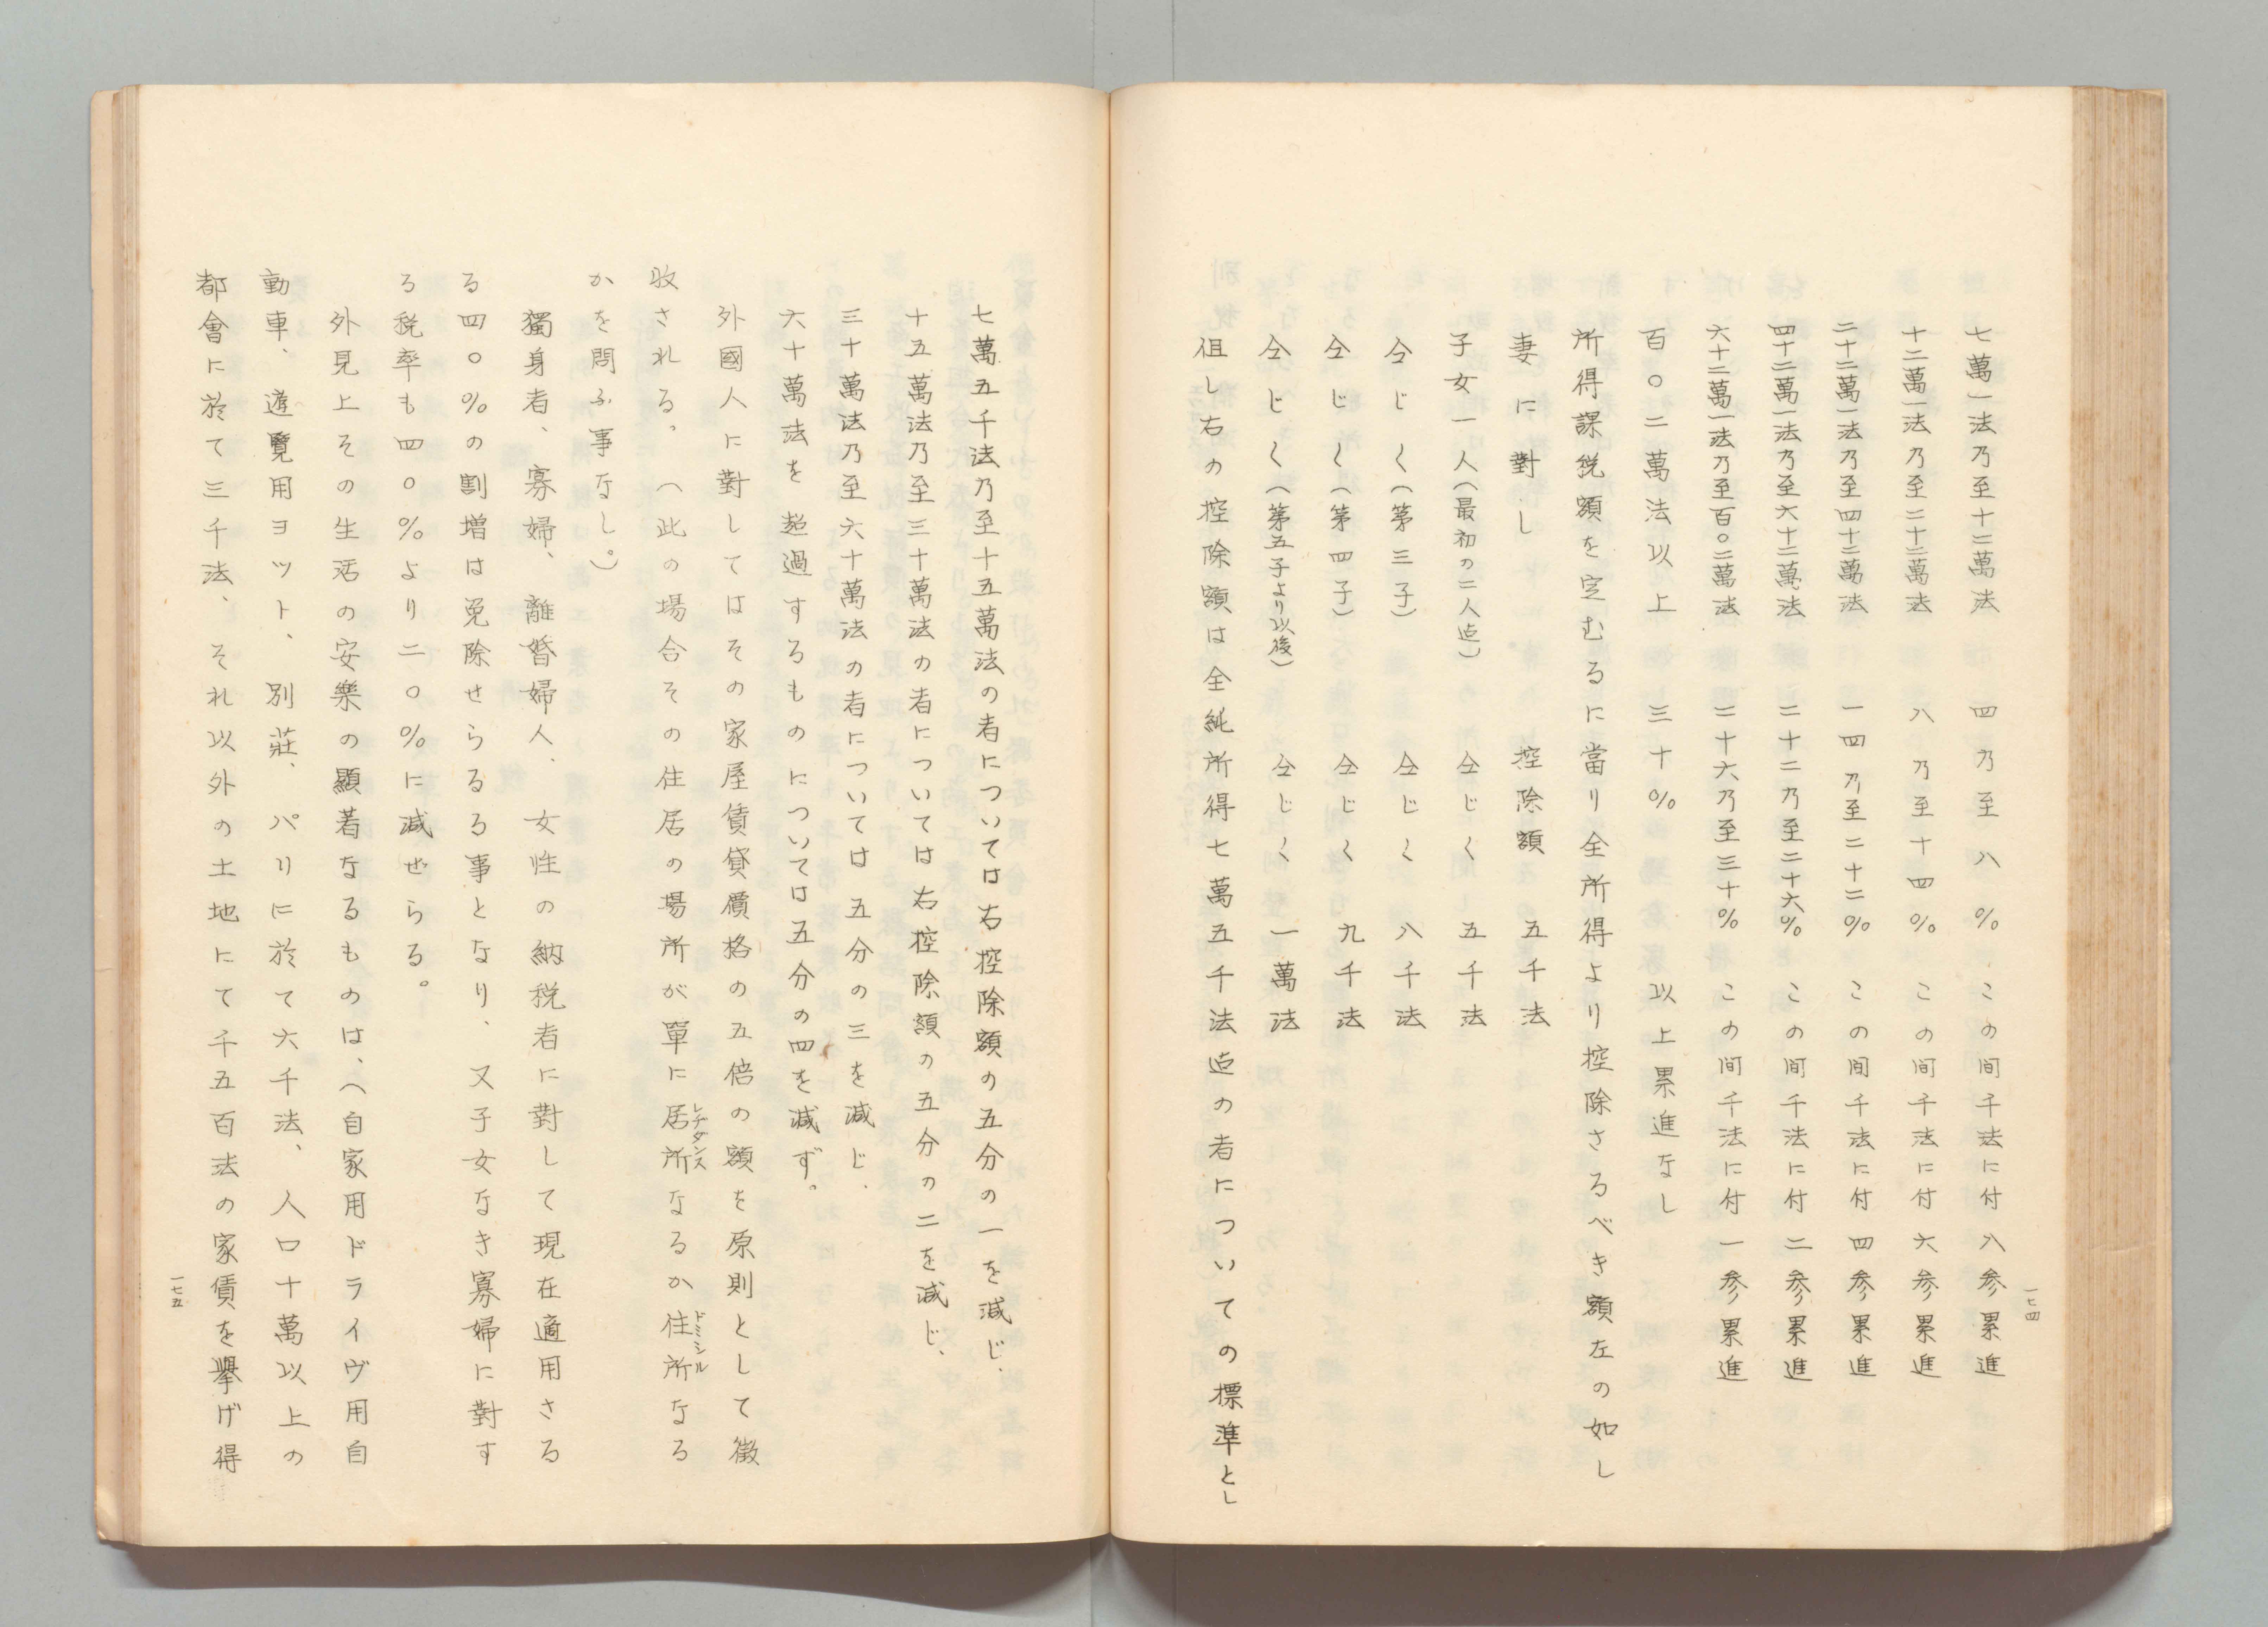 七萬一法乃至十二萬法 四乃至八% この間千法に付八参累進
十二萬一法乃至二十二萬法 八乃至十四% この間千法に付六参累進
二十二萬一法乃至四十二萬法 一四乃至二十二% この間千法に付四参累進
四十二萬一法乃至六十二萬法 二十二乃至二十六% この間千法に付二参累進
六十二萬一法乃至百〇二萬法 二十六乃至三十% この間千法に付一参累進
百〇二萬法以上 三十% 以上累進なし
所得課税額を定むるに當り全所得より控除さるべき額左の如し
妻に對し 控除額 五千法
子女一人(最初の二人迠) 仝じく 五千法
仝じく(第三子) 仝じく 八千法
仝じく(第四子) 仝じく 九千法
仝じく(第五子より以後) 仝じく 一萬法
但し右の控除額は全純所得七萬五千法迠の者についての標準とし
一七四
七萬五千法乃至十五萬法の者については右控除額の五分の一を減じ、
十五萬法乃至三十萬法の者については右控除額の五分の二を減じ、
三十萬法乃至六十萬法の者については五分の三を減じ、
六十萬法を超過するものについては五分の四を減ず。
外國人に對してはその家屋賃貸價格の五倍の額を原則として徴
收される。(此の場合その住居の場所が單に居所なるか住所なる
レヂダンス
ドミシル
かを問ふ事なし。)
獨身者、寡婦、離婚婦人、女性の納税者に對して現在適用さる
る四〇%の割増は免除せらるる事となり、又子女なき寡婦に對す
る税率も四〇%より二〇%に減ぜらる。
外見上その生活の安樂の顯著なるものは、(自家用ドライヴ用自
動車、遊覽用ヨット、別莊、パリに於て六千法、人口十萬以上の
都會に於て三千法、それ以外の土地にて千五百法の家賃を擧げ得
一七五